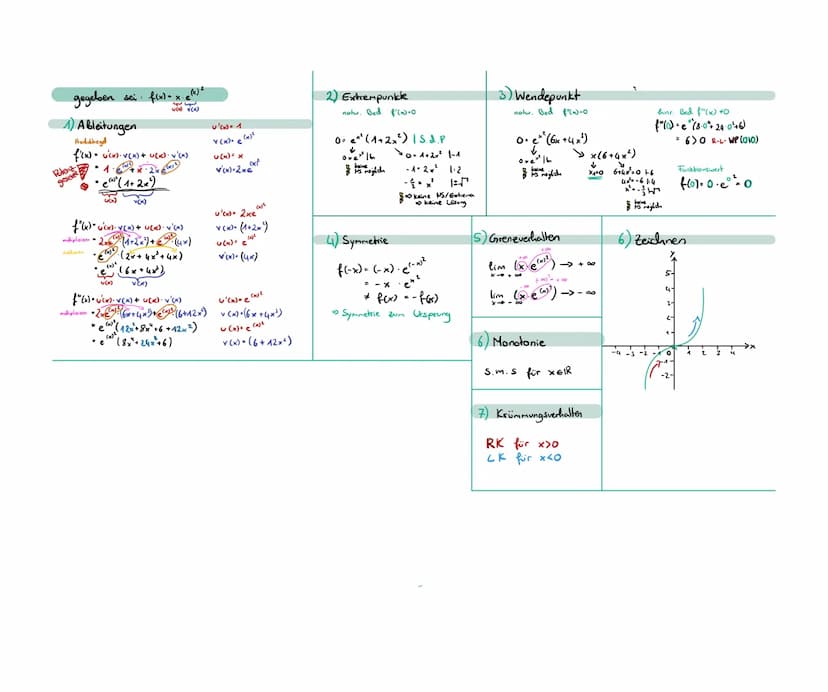 gegeben sei: f(x) = x · e^(x)²
u(x) v(x)
1) Ableitungen
Produktregel
f'(x) = u'(x) · v(x) + u(x) · v'(x)
= 1 · e^(x)² + x · 2x e^(x)²
= e^(x)² (1 + 2x²)
u(x) v(x)
u'(x) = 1
v(x) = e^(x)²
u(x) = x
v'(x) = 2x e^(x)²
f''(x) = u'(x) · v(x) + u(x) · v'(x)
= 2x e^(x)² (1 + 2x²) + e^(x)² (4x)
= e^(x)² (2x + 4x³ + 4x)
= e^(x)² (6x + 4x³)
u(x) v(x)
u'(x) = 2x e^(x)²
v(x) = (1 + 2x²)
u(x) = e^(x)²
v'(x) = (4x)
f'''(x) = u'(x) · v(x) + u(x) · v'(x)
= 2x e^(x)² (6x + 4x³) + e^(x)² (6 + 12x²)
= e^(x)² (12x² + 8x⁴ + 6 + 12x²)
= e^(x)² (8x⁴ + 24x² + 6)
v(x) = (6x + 4x³)
u(x) = e^(x)²
v'(x) = (6 + 12x²)
2) Extrempunkte
notw. Bed f'(x) = 0
0 = e^x² (1 + 2x²) | S.d.P
0 = 1 + 2x² | -1
-1 = 2x² | :2
-1/2 = x² | √
keine NS möglich
⇒ keine Lösung
3) Wendepunkt
notw. Bed f''(x) = 0
0 = e^x² (6x + 4x³)
x(6 + 4x²)
x₁ = 0
6 + 4x² = 0 | -6
4x² = -6 | :4
keine NS möglich
hinr. Bed f'''(x) ≠ 0
f'''(0) = e^0² (8 · 0⁴ + 24 · 0² + 6)
= 6 > 0 R-L-WP (0|0)
Funktionswert
f(0) = 0 · e^0² = 0
4) Symmetrie
f(-x) = (-x) · e^(-x)²
= -x · e^x²
≠ f(x) = -f(x)
⇒ Symmetrie zum Ursprung
5) Grenzverhalten
lim (x · e^(x)²) → +∞
x → +∞
lim (x · e^(x)²) → -∞
x → -∞
6) Monotonie
s.m.s für x∈ℝ
7) Krümmungsverhalten
RK für x>0
LK für x<0
6) Zeichnen
y
5
4
3
2
1
-4 -3 -2 -1 0 1 2 3 4 x
-1
-2